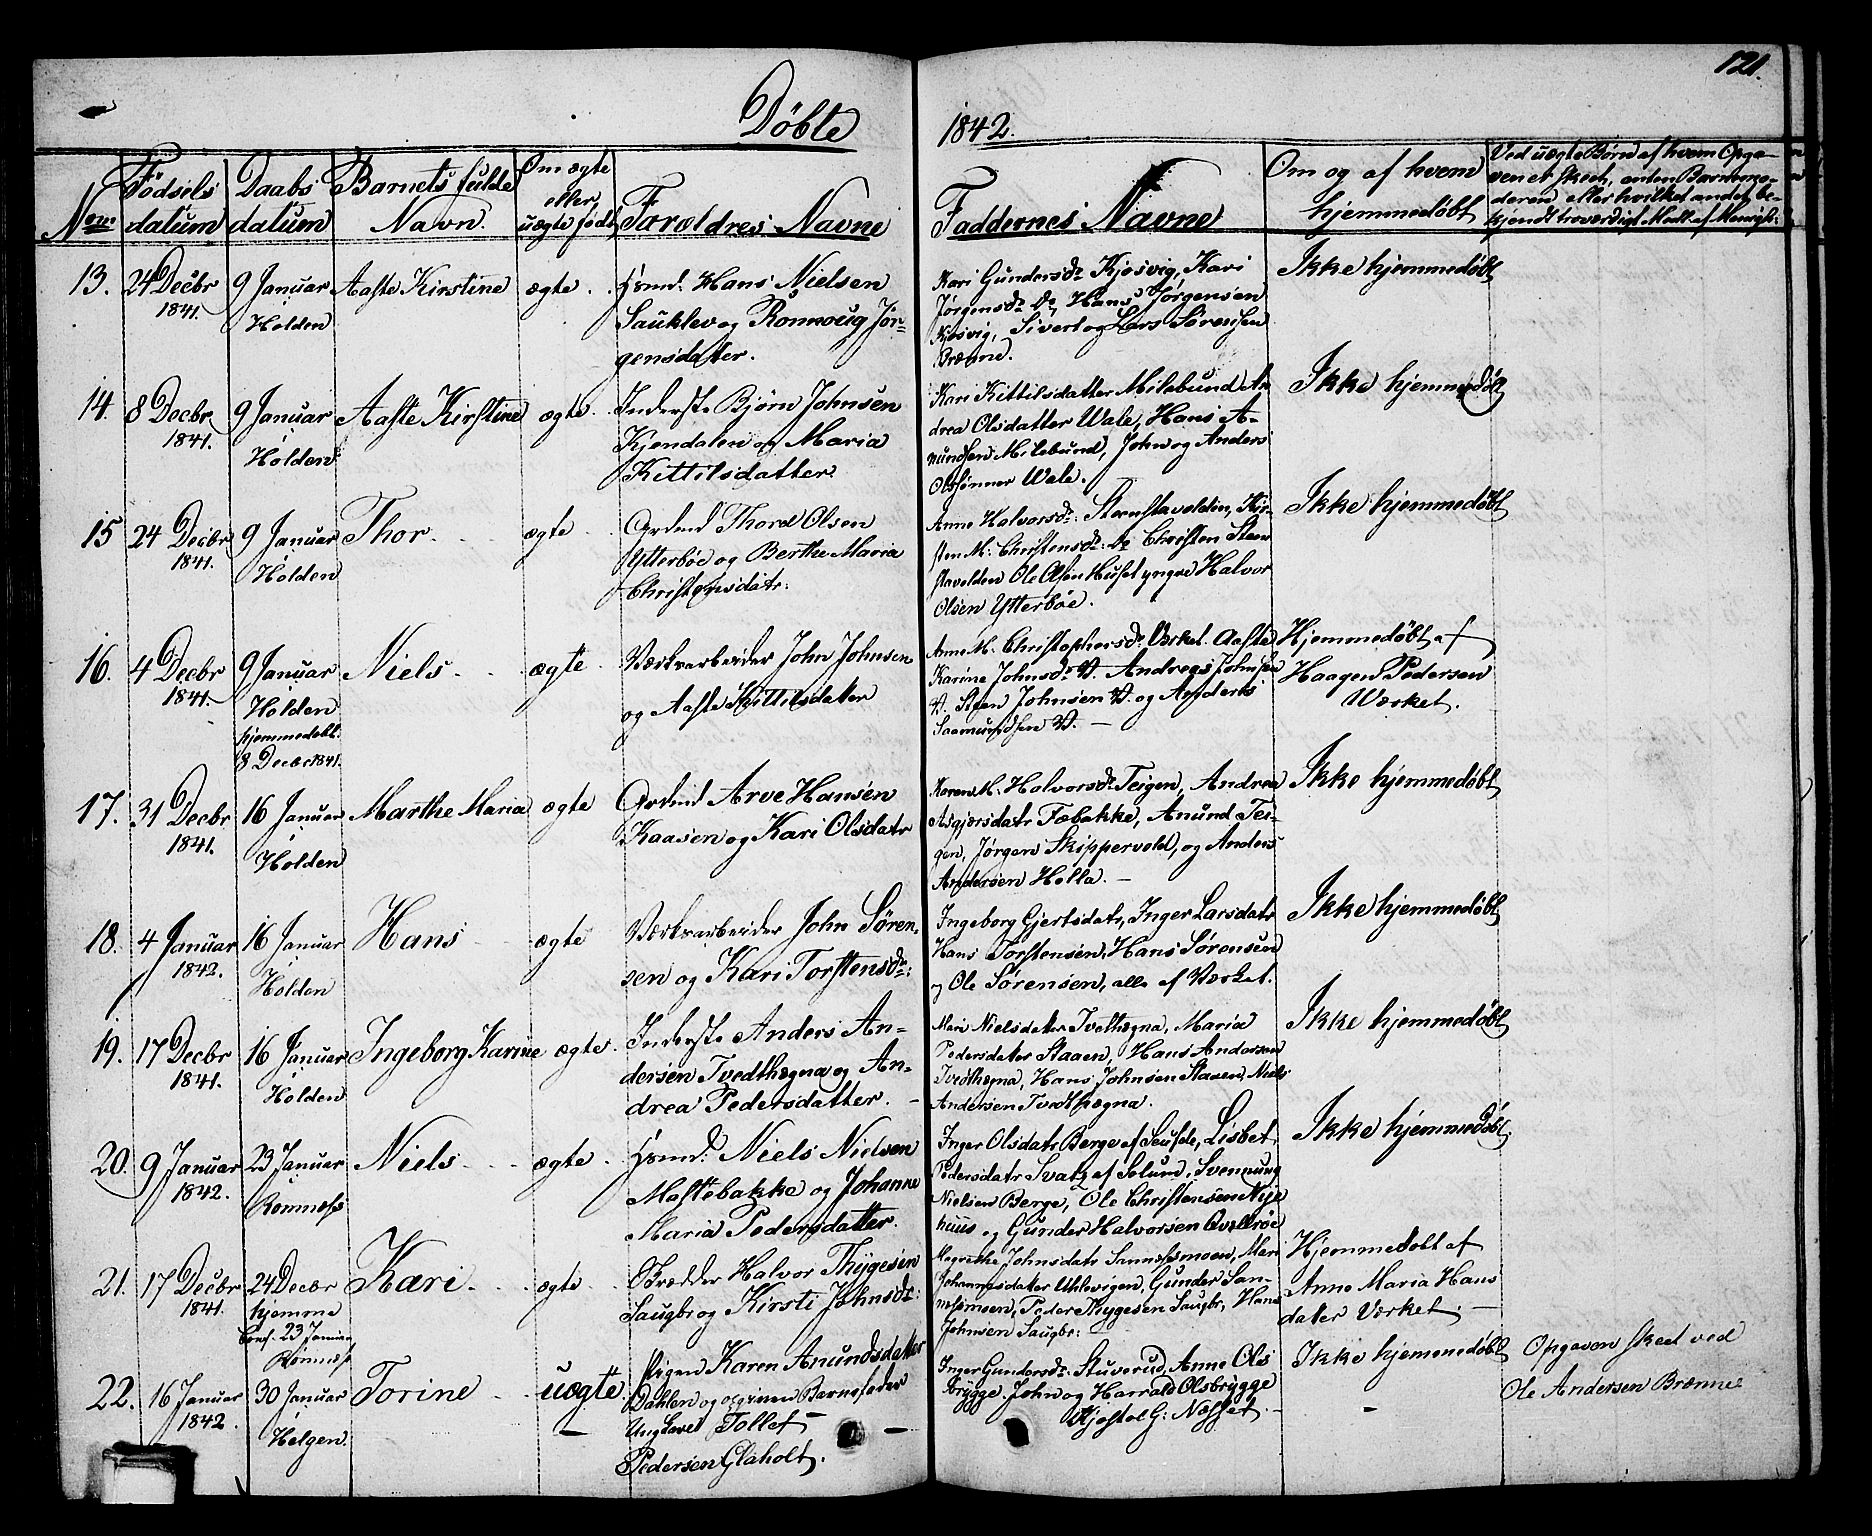 121.
Döbte 1842.
Nom
Födsels datum
Daabs datum
Barnets fulde Navn.
Om ægte eller uægte født
Forældres Navne
Faddernes Navne
Om og af hvem hjemmedöbt
Ved uægte Børn af hvem Opga-
ven er skeet, enten Barnemo-
deren eller hvilket andet be-
kjendt troværdigt Medl. af Menigh:
13. 24 Decbr 1841. 9 Januar Holden Aaste Kirstine ægte
Hans Nielsen
Sauklev og Jör-
gensdatter.
Kari Gundersdr Kjosvig, Kari
Jörgensdr Do, Hans Jörgensen
Kjosvig, Sivert og Lars Sörensen
Brænne.
Ikke hjemmedöbt
14. 8 Decbr 1841. 9 Januar Holden Aaste Kirstine ægte
Inderste Björn Johnsen
Kjendalen og Maria
Kittilsdatter
Kari Kittilsdatter Milebund An
drea Olsdatter Wale, Hans A-
mundsen Milebund, John og Anders
Olssönner Wale.
Ikke hjemmedöbt
15 24 Decbr 1841. 9 Januar Holden Thor ægte
Thord Olsen
Ytterböe og Berthe Maria
Christensdatr:
Anne Halvorsdr: Steenstavolden, Kir-
sten M: Christensdr: Do Christen Steen
stavolden Ole Olsen Huset yngre Halvor
Olsen Ytterböe.
Ikke hjemmedöbt
16. 4 Decbr 1841. 9 Januar Holden hjemmedöbt. 8 Decbr 1841. Niels ægte
Værksarbeider John Johnsen
og Aaste Kittilsdater
Anne M. Christophersdr Værket. Aaste
Karine Johnsdr V. Andreas Johnsen
V. Steen Johnsen V. og Anders
Saamundsen V.
Hjemmedöbt af
Haagen Pedersen
Værket.
17. 31 Decbr 1841. 16 Januar Holden Marthe Maria ægte
Arve Hansen
Kaasen og Kari Olsdatr
Karen M. Halvorsdr Teigen, Andrea
Asgjersdatr Fæbakke, Anund Tei-
gen, Jörgen Skippervold, og Anders
Andersen Holla.
Ikke hjemmedöbt
18. 4 Januar 1842. 16 Januar Holden Hans ægte
Værksarbeider John Sören-
sen og Kari Torstensdr:
Ingeborg Gjertsdatr, Inger Larsdatr
Hans Torstensen, Hans Sörensen
og Ole Sörensen, alle af Værket.
Ikke hjemmedöbt
19. 17 Decbr 1841. 16 Januar Holden Ingeborg Karine ægte
Inderste Anders An-
dersen Tvedthægna og An-
drea Pedersdatter.
Mari Nielsdater Tvedthægna, Maria
Pedersdater Staaen, Hans Andersen
Tvedthægna, Hans Johnsen Staaen, Niels
Andersen Tvedthægna.
Ikke hjemmedöbt
20. 9 Januar 1842. 23 Januar Romness Niels ægte
Niels Nielsen
Mastebakke og Johanne
Maria Pedersdatter.
Inger Olsdatr Berge af Seufde, Lisbet
Pedersdatr Svatz af Solum, Svennung
Nielsen Berge, Ole Christensen Nye
huus og Gunder Halvorsen
Ikke hjemmedöbt
21. 17 Decbr 1841. 24 Decbr hjemme Conf: 23 Januar Romness Kari ægte
Halvor Thygesen
Saugbr og Kirsti Johnsdr:
Megrethe Johnsdatr Sannessmoen, Mari
Johannesdater Uhlevigen, Gunder San-
nessmoen, Peder Thygesen Saugbr, Hans
Johnsen Saugbr:
Hjemmedöbt af
Anne Maria Hans
dater Værket.
22. 16 Januar 1842 30 Januar Helgen. Torine uægte
Pigen Karen Anundsdatter
Dahlen og opgiven Barnefader
Ungkarl Tollef
Pedersen Glaholt.
Inger Gundersdr. Stuverud, Anne Ols
brygge. John og Harrald Olsbrygge
Kjöstol G: Næsset.
Ikke hjemmedöbt
Opgaven skeet ved
Ole Andersen Brænne